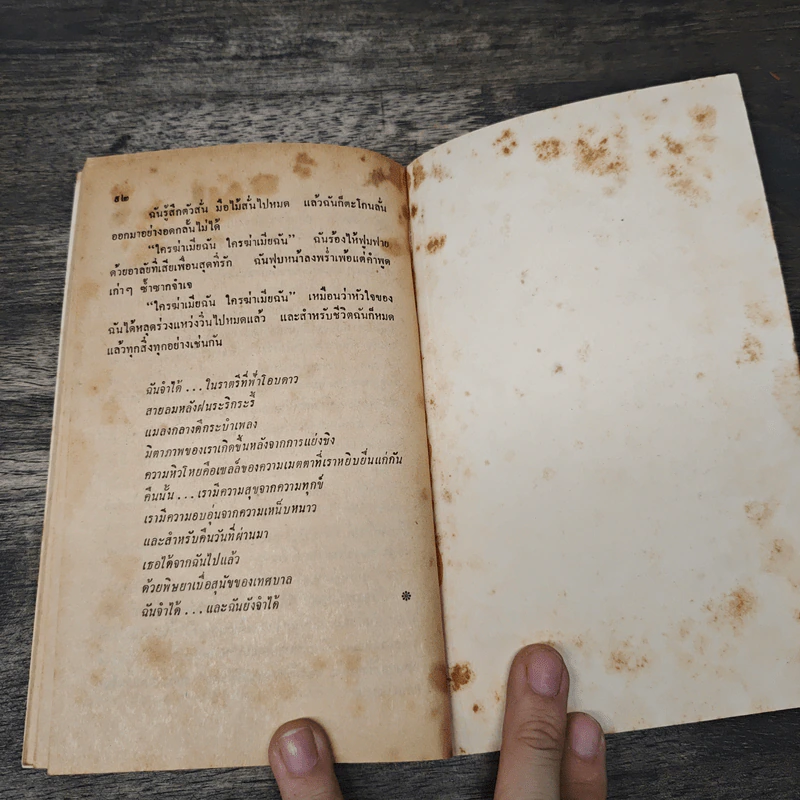 ๕๒
ฉันรู้สึกตัวสั่น มือไม้สั่นไปหมด แล้วฉันก็ตะโกนลั่น
ออกมาอย่างอดกลั้นไม่ได้
“ใครฆ่าเมียฉัน ใครฆ่าเมียฉัน” ฉันร้องไห้ฟูมฟาย
ด้วยอาลัยที่เสียเพื่อนสุดที่รัก ฉันฟุบหน้าลงพร่ำเพ้อแต่คำพูด
เก่าๆ ซ้ำซากจำเจ
“ใครฆ่าเมียฉัน ใครฆ่าเมียฉัน” เหมือนว่าหัวใจของ
ฉันได้หลุดร่วงแหว่งวิ่นไปหมดแล้ว และสำหรับชีวิตฉันก็หมด
แล้วทุกสิ่งทุกอย่างเช่นกัน
ฉันจำได้ ...ในราตรีที่ฟ้าโอบดาว
สายลมหลังฝนระริกระรี้
แมลงกลางดึกระบำเพลง
มิตาภาพของเราเกิดขึ้นหลังจากการแย่งชิง
ความหิวโหยคือเซลล์ของความเมตตาที่เราหยิบยื่นแก่กัน
คืนนั้น ...เรามีความสุขจากความทุกข์
เรามีความอบอุ่นจากความเหน็บหนาว
และสำหรับคืนวันที่ผ่านมา
เธอได้จากฉันไปแล้ว
ด้วยพิษยาเบื่อสุนัขของเทศบาล
ฉันจำได้ ...และฉันยังจำได้